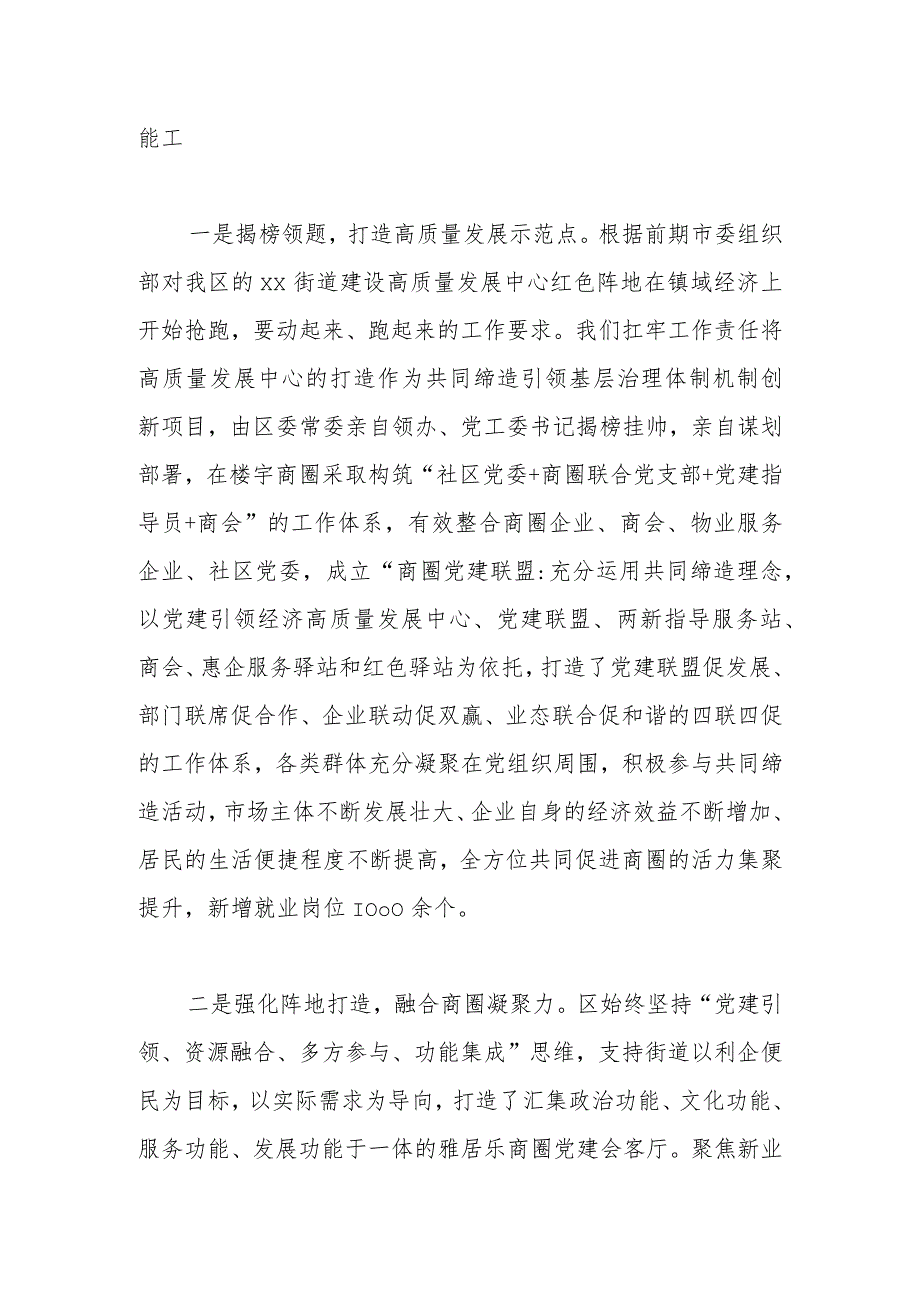 能工
一是揭榜领题，打造高质量发展示范点。根据前期市委组织
部对我区的 XX 街道建设高质量发展中心红色阵地在镇域经济上
开始抢跑，要动起来、跑起来的工作要求。我们扛牢工作责任将
高质量发展中心的打造作为共同缔造引领基层治理体制机制创
新项目，由区委常委亲自领办、党工委书记揭榜挂帅，亲自谋划
部署，在楼宇商圈采取构筑“社区党委+商圈联合党支部+党建指
导员+商会”的工作体系，有效整合商圈企业、商会、物业服务
企业、社区党委，成立“商圈党建联盟:充分运用共同缔造理念，
以党建引领经济高质量发展中心、党建联盟、两新指导服务站、
商会、惠企服务驿站和红色驿站为依托，打造了党建联盟促发展、
部门联席促合作、企业联动促双赢、业态联合促和谐的四联四促
的工作体系，各类群体充分凝聚在党组织周围，积极参与共同缔
造活动，市场主体不断发展壮大、企业自身的经济效益不断增加、
居民的生活便捷程度不断提高，全方位共同促进商圈的活力集聚
提升，新增就业岗位 IOoO 余个。
二是强化阵地打造，融合商圈凝聚力。区始终坚持“党建引
领、资源融合、多方参与、功能集成”思维，支持街道以利企便
民为目标，以实际需求为导向，打造了汇集政治功能、文化功能、
服务功能、发展功能于一体的雅居乐商圈党建会客厅。聚焦新业